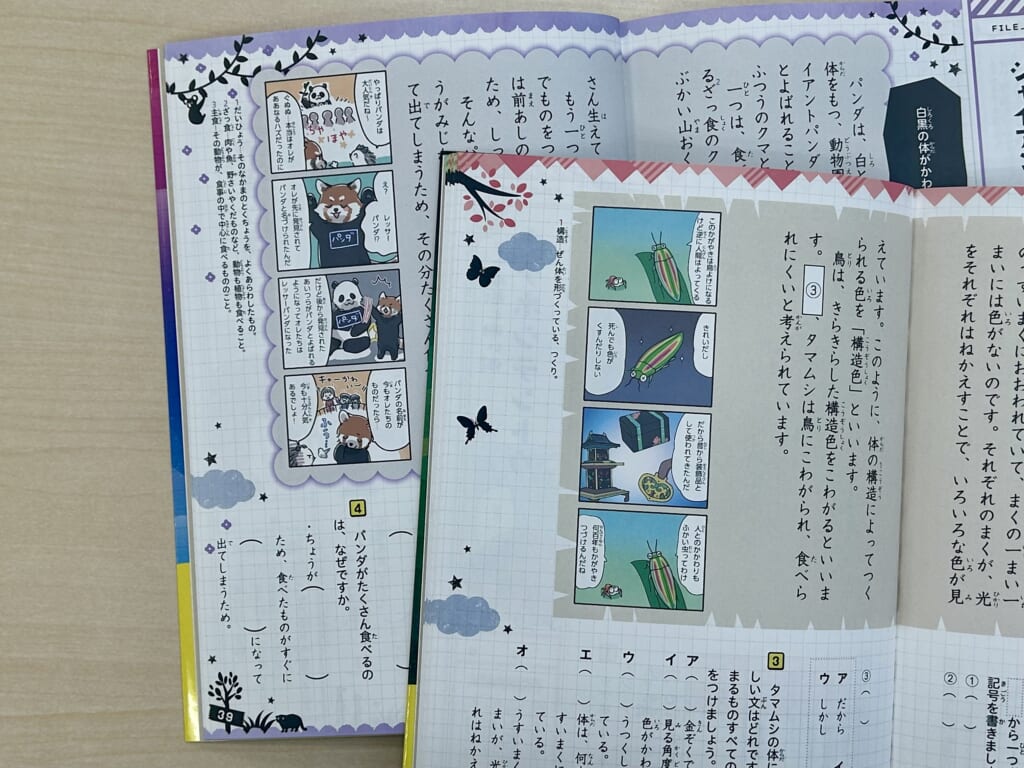 FILE_
白黒の体がかわ
パンダは、白と
体をもつ、動物園
とよばれること
イアントパンダ
ふつうのクマと
一つは、食べ
るざっ食のク
ぶかい山おく
さん生えて
もう一つ
でものをつ
は前あしの
ため、しっ
そんな
うがみじ
て出てしまうため、その分たくさん
やっぱりパンダは
大人気だね〜
ぐぬぬ…本当はオレが
ああなるハズだったのに
え?
レッサー
パンダ!?
オレが先に発見されて
パンダと名づけられたんだ
パンダ
だけど後から発見された
あいつらがパンダとよばれる
ようになってオレたちは
レッサーパンダになった
パンダ
パンダの名前が
今もオレたちの
ものだったら
今も十分人気
あるでしょ!
1だいひょう…そのなかまのとくちょうを、よくあらわしたもの。
2ざっ食…肉や魚、野さいやくだものなど、動物も植物も食べること。
3主食…その動物が、食事の中で中心に食べるもののこと。
4
パンダがたくさん食べるの
は、なぜですか。
・ちょうが( )
( )になって
ため、食べたものがすぐに
出てしまうため。
39
のうすいまくにおおわれていて、まくの一まい一
まいには色がないのです。それぞれのまくが、光
をそれぞれはねかえすことで、いろいろな色が見
えています。このように、体の構造によってつく
られる色を「構造色」といいます。
鳥は、きらきらした構造色をこわがるといいま
す。③、タマムシは鳥にこわがられ、食べら
れにくいと考えられています。
このかがやきは鳥よけになる
けど逆に人間はよってくる
きれいだし
死んでも色が
くすんだりしない
だから昔から装飾品と
して使われてきたんだ
人とのかかわりも
ふかい虫ってわけ
何百年もかがやき
つづけるんだね
1構造…ぜん体を形づくっている、つくり。
から一つ
記号を書きまし
①( )
②( )
③( )
ア だから
ウ しかし
3
タマムシの体に
しい文はどれです
まるものすべての
をつけましょう。
ア( )金ぞくで
イ( )見る角度
色がかわ
ウ( )うつくし
ている。
エ( )体は、何
すいまくに
ている。
オ( )うすいまく
まいが、光
れはねかえ